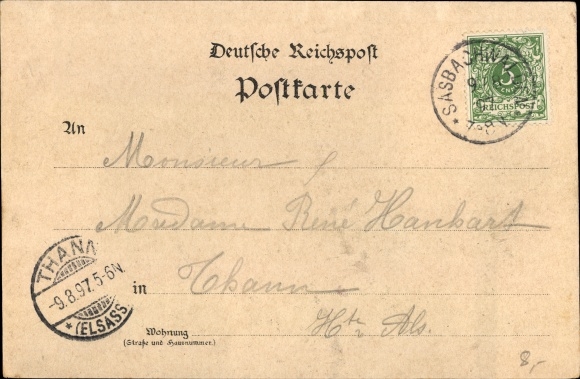 Deutsche Reichspost
Postkarte
SASBACHWALDEN
REICHSPOST
5
An
Monsieur
Madame René Hanhart
in Thann
Hte Als.
THANN
-9.8.97. 5-6N.
* (ELSASS
Wohnung
(Straße und Hausnummer.)
8,-